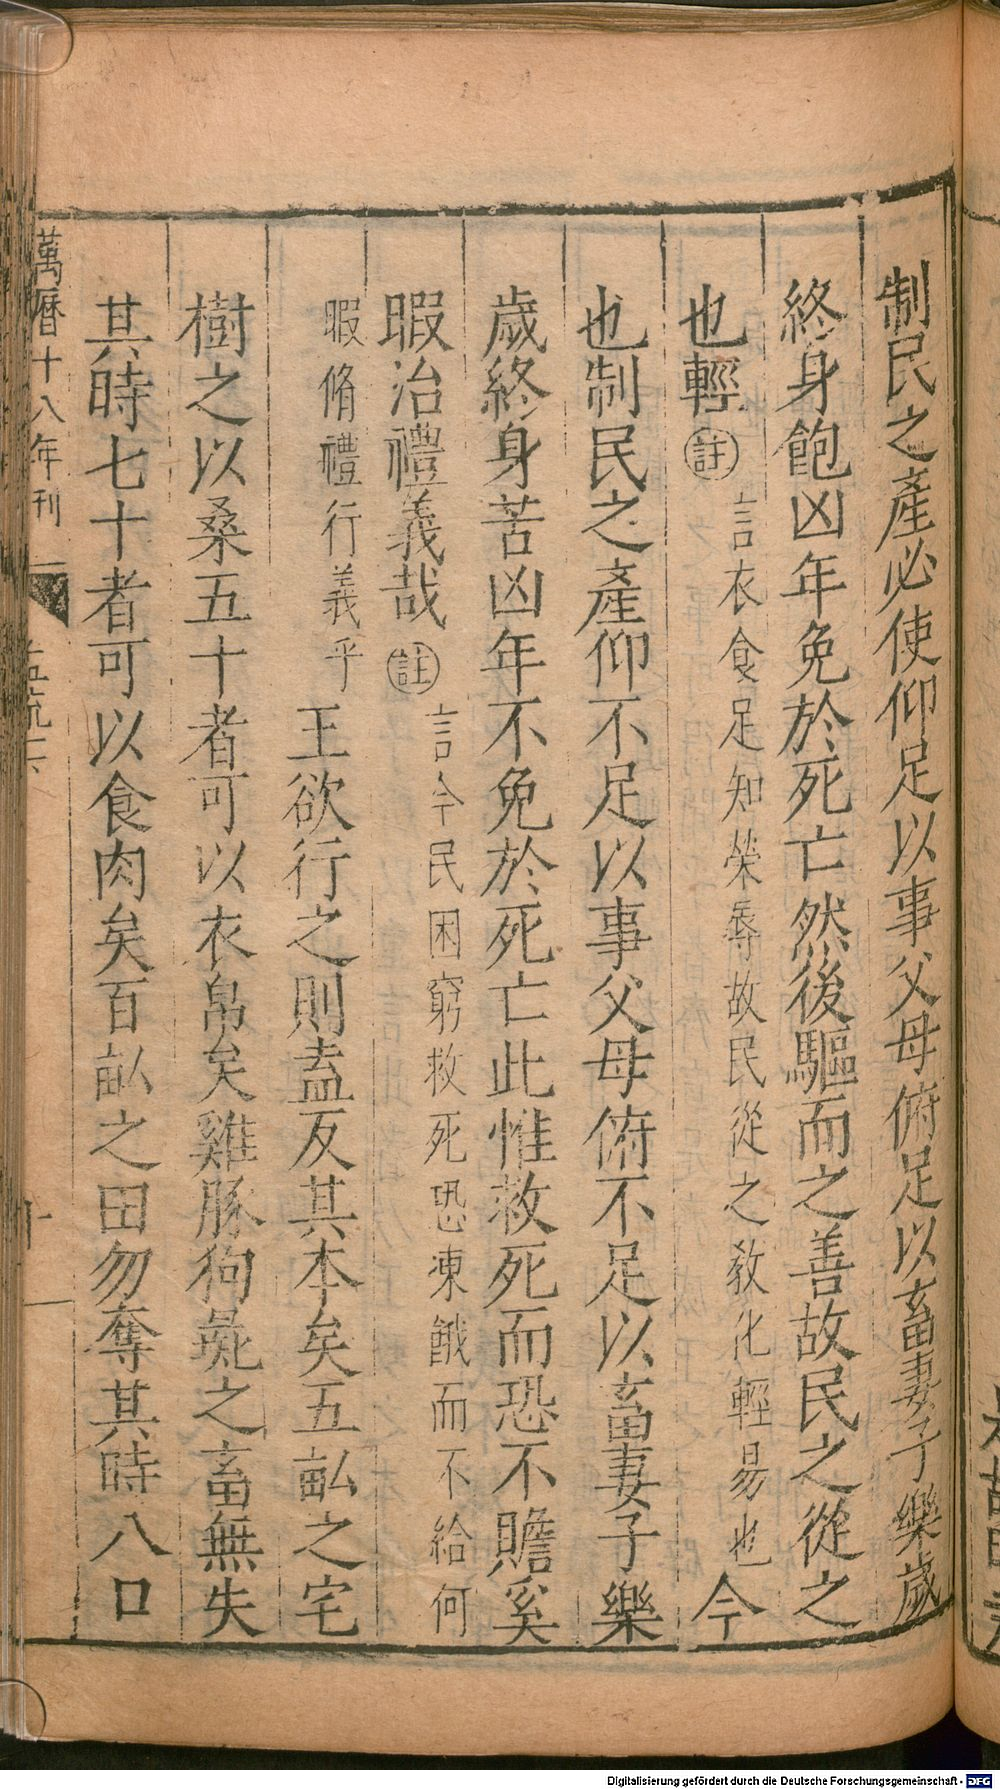 制民之產必使仰足以事父母俯足以畜妻子樂歲
終身飽凶年免於死亡然後驅而之善故民之從之
也輕註言衣食足知榮辱故民從之敎化輕易也今
也制民之產仰不足以事父母俯不足以畜妻子樂
歲終身苦凶年不免於死亡此惟救死而恐不贍奚
暇治禮義哉註言今民困窮救死恐凍餓而不給何
暇脩禮行義乎王欲行之則盍反其本矣五畝之宅
樹之以桑五十者可以衣帛矣雞豚狗彘之畜無失
其時七十者可以食肉矣百畝之田勿奪其時八口
萬曆十八年刊
十
Digitalisierung gefördert durch die Deutsche Forschungsgemeinschaft - DFG